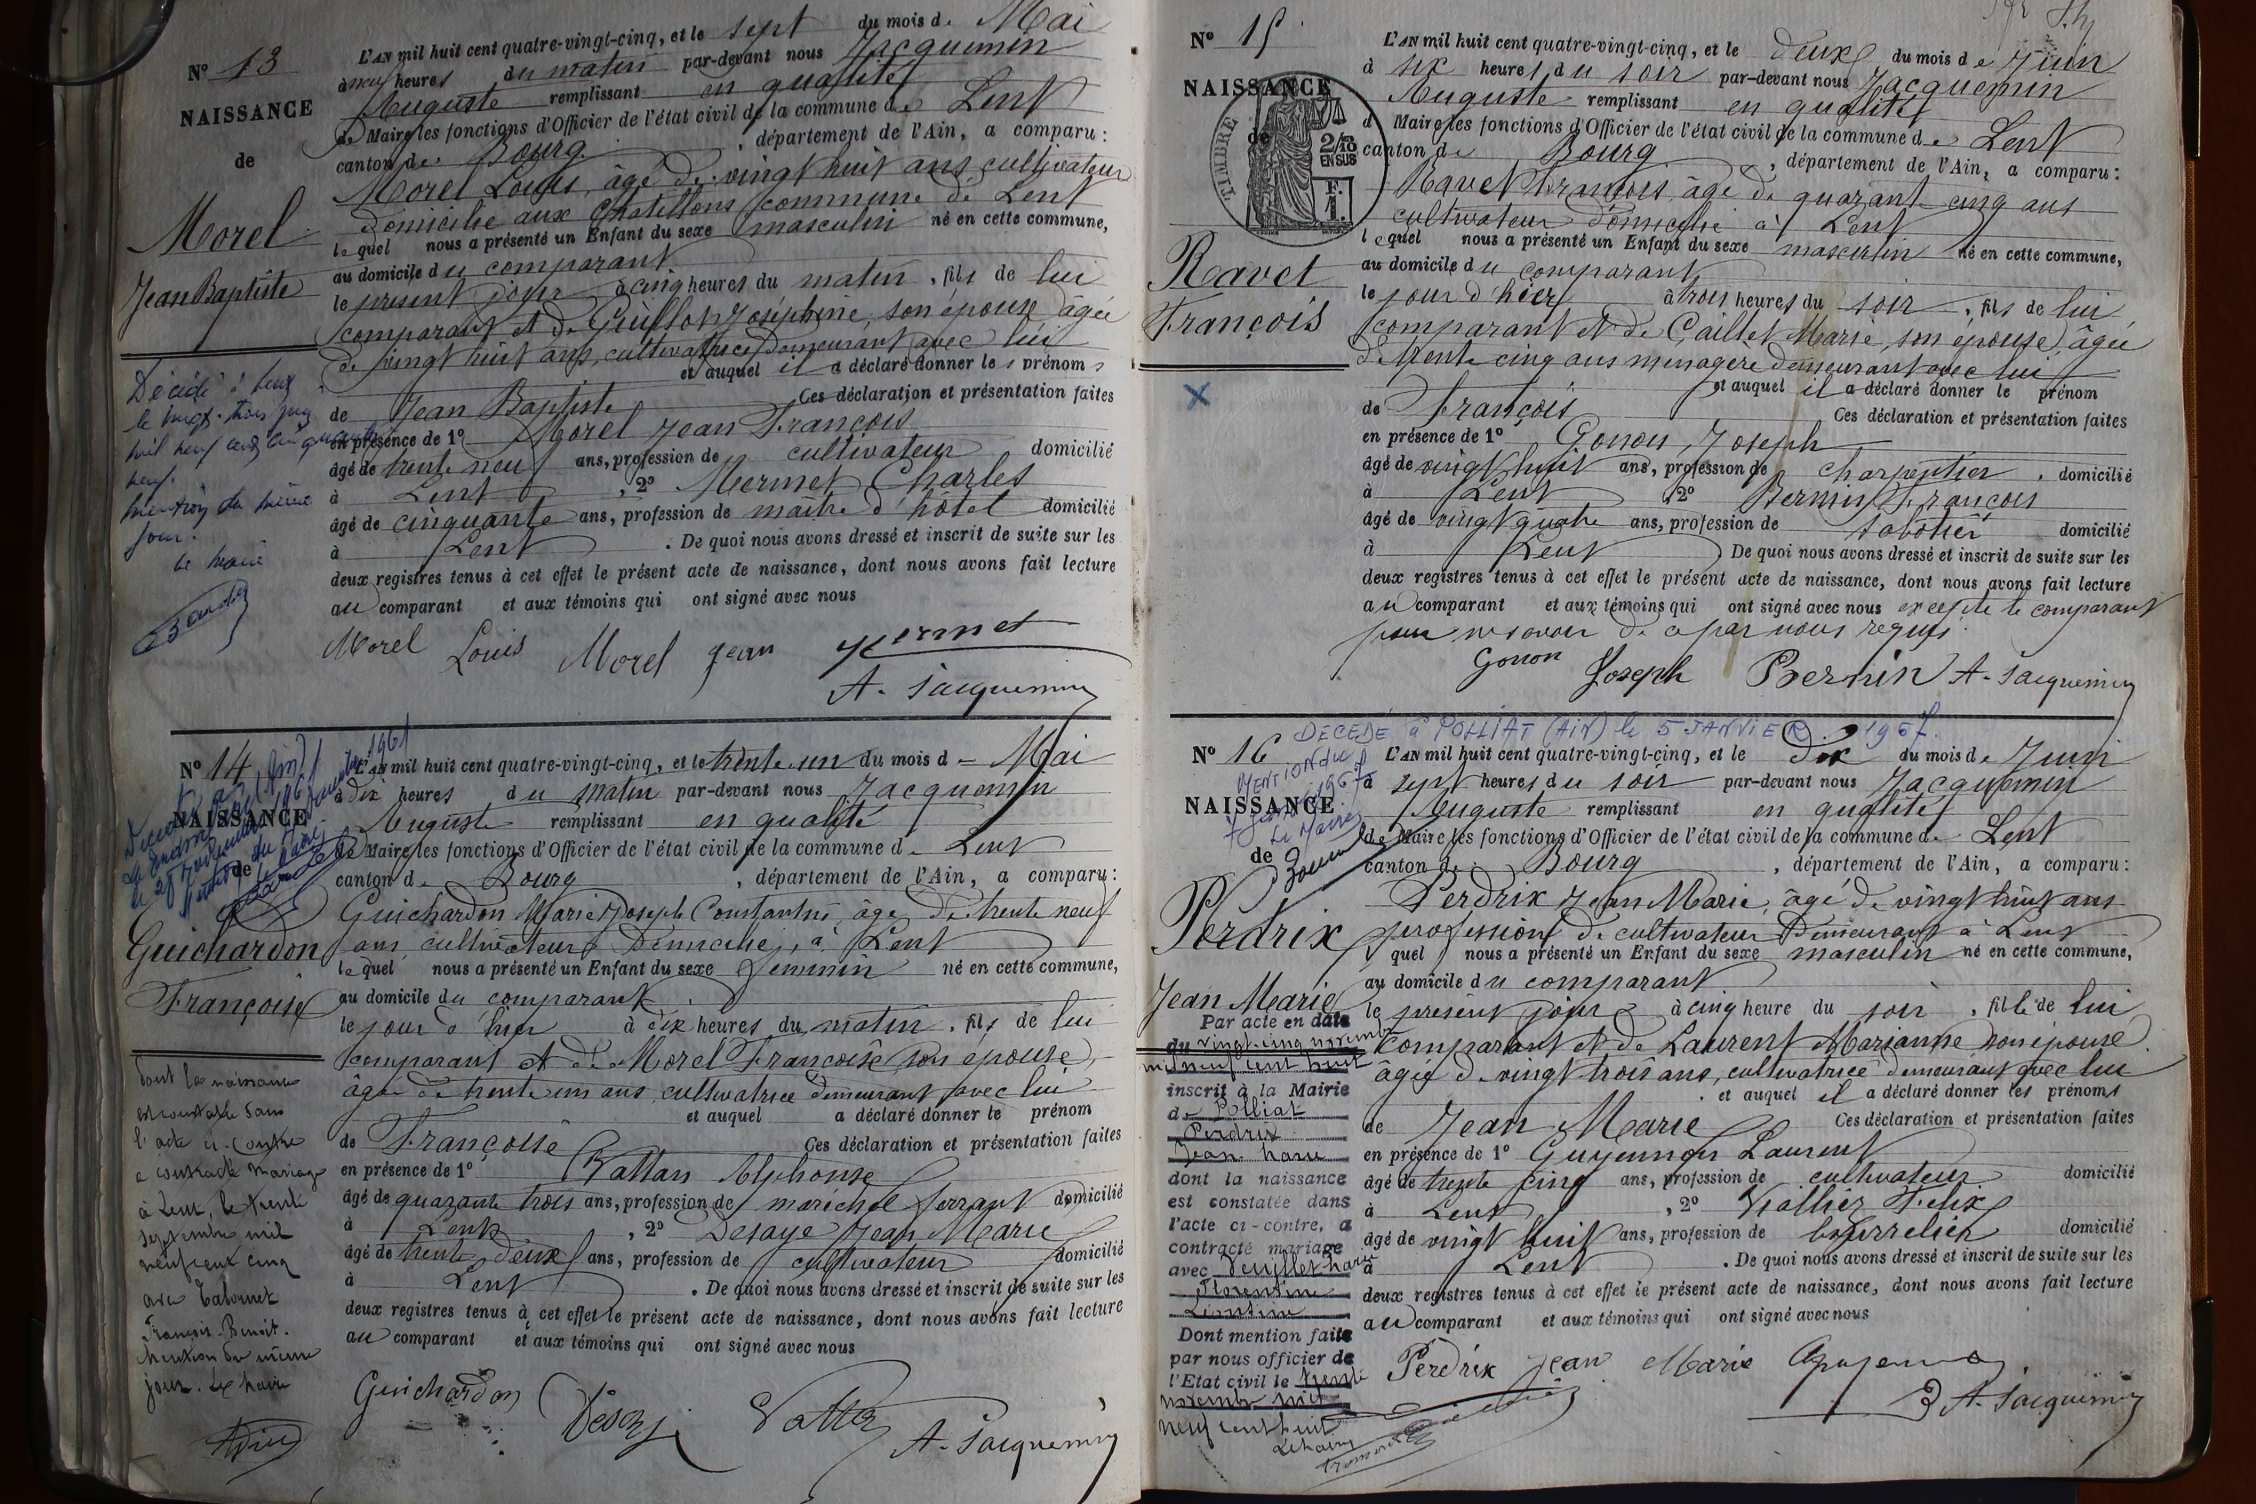 N° 13
NAISSANCE
de
Morel
Jean Baptiste
Décédé à Lent
le vingt-trois juin
mil neuf cent cinquante
neuf.
Mention du même
jour.
Le Maire
L'AN mil huit cent quatre-vingt-cinq, et le sept du mois d. Mai
à neuf heures du matin par-devant nous Jacquemin
Auguste remplissant en qualité
de Maire les fonctions d'Officier de l'état civil de la commune de Lent
canton de Bourg, département de l'Ain, a comparu:
Morel Louis, âgé de vingt huit ans, cultivateur
domicilié aux Chatillons commune de Lent
lequel nous a présenté un Enfant du sexe masculin né en cette commune,
au domicile du comparant
le présent jour à cinq heures du matin, fils de lui
comparant et de Guillot Joséphine, son épouse âgée
de vingt huit ans, cultivatrice demeurant avec lui
et auquel il a déclaré donner les prénoms
de Jean Baptiste Ces déclaration et présentation faites
en présence de 1° Morel Jean François
âgé de trente neuf ans, profession de cultivateur domicilié
à Lent, 2° Mermet Charles
âgé de cinquante ans, profession de maître d'hôtel domicilié
à Lent. De quoi nous avons dressé et inscrit de suite sur les
deux registres tenus à cet effet le présent acte de naissance, dont nous avons fait lecture
au comparant et aux témoins qui ont signé avec nous
Morel Louis Morel Jean Mermet
A. Jacquemin
N° 14
NAISSANCE
de
Guichardon
Françoise
dont la naissance
est constatée dans
l'acte ci-contre
a contracté mariage
à Lent, le trente
septembre mil
neuf cent cinq
avec
François-Benoit.
Mention du même
jour. Le Maire
L'AN mil huit cent quatre-vingt-cinq, et le trente un du mois d Mai
à dix heures du matin par-devant nous Jacquemin
Auguste remplissant en qualité
de Maire les fonctions d'Officier de l'état civil de la commune d. Lent
canton d. Bourg, département de l'Ain, a comparu:
Guichardon Marie Joseph Constantin, âgé de trente neuf
ans, cultivateur, domicilié, à Lent
lequel nous a présenté un Enfant du sexe féminin né en cette commune,
au domicile du comparant.
le jour d'hier à dix heures du matin, fils de lui
comparant et de Morel Françoise son épouse,
âgée de trente un ans, cultivatrice demeurant avec lui
et auquel a déclaré donner le prénom
de Françoise Ces déclaration et présentation faites
en présence de 1° Vattan Alphonse
âgé de quarante trois ans, profession de maréchal ferrant domicilié
à Lent, 2° Desaye Jean Marie
âgé de trente deux ans, profession de cultivateur domicilié
à Lent. De quoi nous avons dressé et inscrit de suite sur les
deux registres tenus à cet effet le présent acte de naissance, dont nous avons fait lecture
au comparant et aux témoins qui ont signé avec nous
Guichardon
A. Jacquemin
N° 15
NAISSANCE
de
TIMBRE
2/10
EN SUS
F.
1.
Ravet
François
L'AN mil huit cent quatre-vingt-cinq, et le deux du mois de Juin
à six heures du soir par-devant nous Jacquemin
Auguste remplissant en qualité
d Maire les fonctions d'Officier de l'état civil de la commune d. Lent
canton de Bourg, département de l'Ain, a comparu:
Ravet François, âgé de quarante-cinq ans
cultivateur domicilié à Lent
lequel nous a présenté un Enfant du sexe masculin né en cette commune,
au domicile du comparant
le jour d'hier à trois heures du soir, fils de lui
comparant et de Caillet Marie, son épouse, âgée
de trente cinq ans ménagère demeurant avec lui
et auquel il a déclaré donner le prénom
de François Ces déclaration et présentation faites
en présence de 1° Gonon Joseph
âgé de vingt huit ans, profession de charpentier, domicilié
à Lent, 2° Bernin François
âgé de vingt quatre ans, profession de sabotier domicilié
à Lent De quoi nous avons dressé et inscrit de suite sur les
deux registres tenus à cet effet le présent acte de naissance, dont nous avons fait lecture
au comparant et aux témoins qui ont signé avec nous excepté le comparant
pour ne savoir de ce par nous requis.
Gonon Joseph Bernin A. Jacquemin
DÉCÉDÉ à POLLIAT (AIN) le 5 JANVIER 1967.
N° 16
MENTION du
NAISSANCE
Le Maire
de
Perdrix
Jean Marie
Par acte en date
du vingt-cinq novembre
mil neuf cent huit
inscrit à la Mairie
de Polliat
Perdrix
Jean Marie
dont la naissance
est constatée dans
l'acte ci-contre, a
contracté mariage
avec
Florentine
Léontine
Dont mention faite
par nous officier de
l'Etat civil le trente
novembre mil
neuf cent huit
Le Maire
L'AN mil huit cent quatre-vingt-cinq, et le dix du mois de Juin
à sept heures du soir par-devant nous Jacquemin
Auguste remplissant en qualité
de Maire les fonctions d'Officier de l'état civil de la commune d. Lent
canton de Bourg, département de l'Ain, a comparu:
Perdrix Jean Marie, âgé de vingt huit ans
profession de cultivateur demeurant à Lent
quel nous a présenté un Enfant du sexe masculin né en cette commune,
au domicile du comparant
le présent jour à cinq heure du soir, fil de lui
comparant et de Laurent Marianne son épouse
âgée de vingt trois ans, cultivatrice demeurant avec lui
et auquel il a déclaré donner les prénoms
de Jean Marie Ces déclaration et présentation faites
en présence de 1° Guyennon Laurent
âgé de trente cinq ans, profession de cultivateur domicilié
à Lent, 2° Viallier Felix
âgé de vingt huit ans, profession de bourrelier domicilié
à Lent. De quoi nous avons dressé et inscrit de suite sur les
deux registres tenus à cet effet le présent acte de naissance, dont nous avons fait lecture
au comparant et aux témoins qui ont signé avec nous
Perdrix Jean Marie
A. Jacquemin